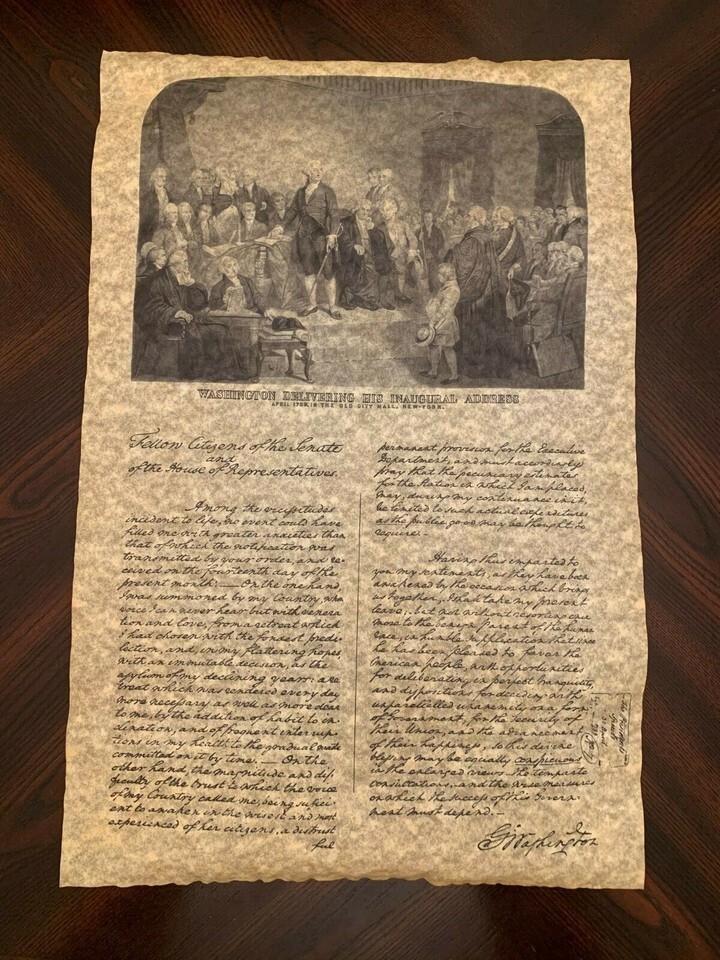 WASHINGTON DELIVERING HIS INAUGURAL ADDRESS
APRIL 1789, IN THE OLD CITY HALL, NEW-YORK.
Fellow Citizens of the Senate
and
of the House of Representatives.
Among the vicissitudes
incident to life, no event could have
filled me with greater anxieties than
that of which the notification was
transmitted by your order, and re-
ceived on the fourteenth day of the
present month:— On the one hand,
I was summoned by my Country, whose
voice I can never hear but with venera-
tion and love, from a retreat which
I had chosen with the fondest predi-
lection, and, in my flattering hopes,
with an immutable decision, as the
asylum of my declining years: a re-
treat which was rendered every day
more necessary as well as more dear
to me, by the addition of habit to in-
clination, and of frequent interrup-
tions in my health to the gradual waste
committed on it by time.— On the
other hand, the magnitude and dif-
ficulty of the trust to which the voice
of my Country called me, being suffici-
ent to awaken in the wisest and most
experienced of her citizens, a distrust
ful
permanent provision for the Executive
Department, and must accordingly
pray that the pecuniary estimates
for the Station in which I am placed,
may, during my continuance in it,
be limited to such actual expenditures
as the public good may be thought to
require.—
Having thus imparted to
you my sentiments, as they have been
awakened by the occasion which brings
us together, I shall take my present
leave; but not without resorting once
more to the benign Parent of the human
race, in humble supplication that since
he has been pleased to favor the
American people, with opportunities
for deliberating in perfect tranquility,
and dispositions for deciding with
unparellelled unanimity on a form
of Government, for the security of
their Union, and the advancement
of their happiness; so his divine
blessing may be equally conspicuous
in the enlarged views—the temperate
consultations,—and the wise measures
on which the success of this Govern-
ment must depend.—
G Washington